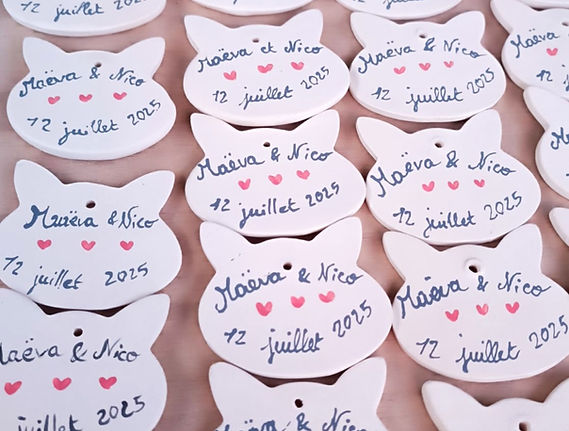 Maëva & Nico
12 juillet 2025
Maëva et Nico
12 juillet 2025
Maëva & Nico
12 juillet 2025
Maëva & Nico
12 juillet 2025
Maëva & Nico
12 juillet 2025
Maëva & Nico
12 juillet 2025
Maëva & Nico
12 juillet 2025
Maëva & Nico
12 juillet 2025
Maëva & Nico
juillet 2025
Maëva & Nico